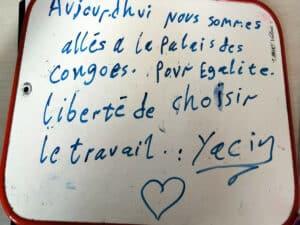 Aujourdhui nous sommes
allés a la Palais des
congoes. Pour Egalite.
Liberté de choisir
Le travail. : Yacin